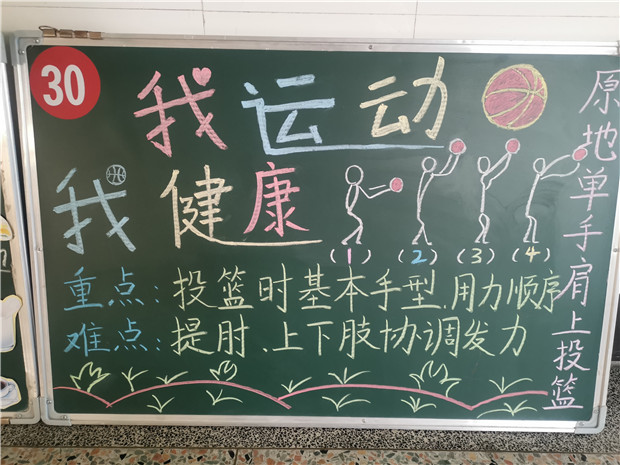 30
我运动
我健康
(1) (2) (3) (4)
重点:投篮时基本手型.用力顺序
难点:提肘.上下肢协调发力
原地单手肩上投篮